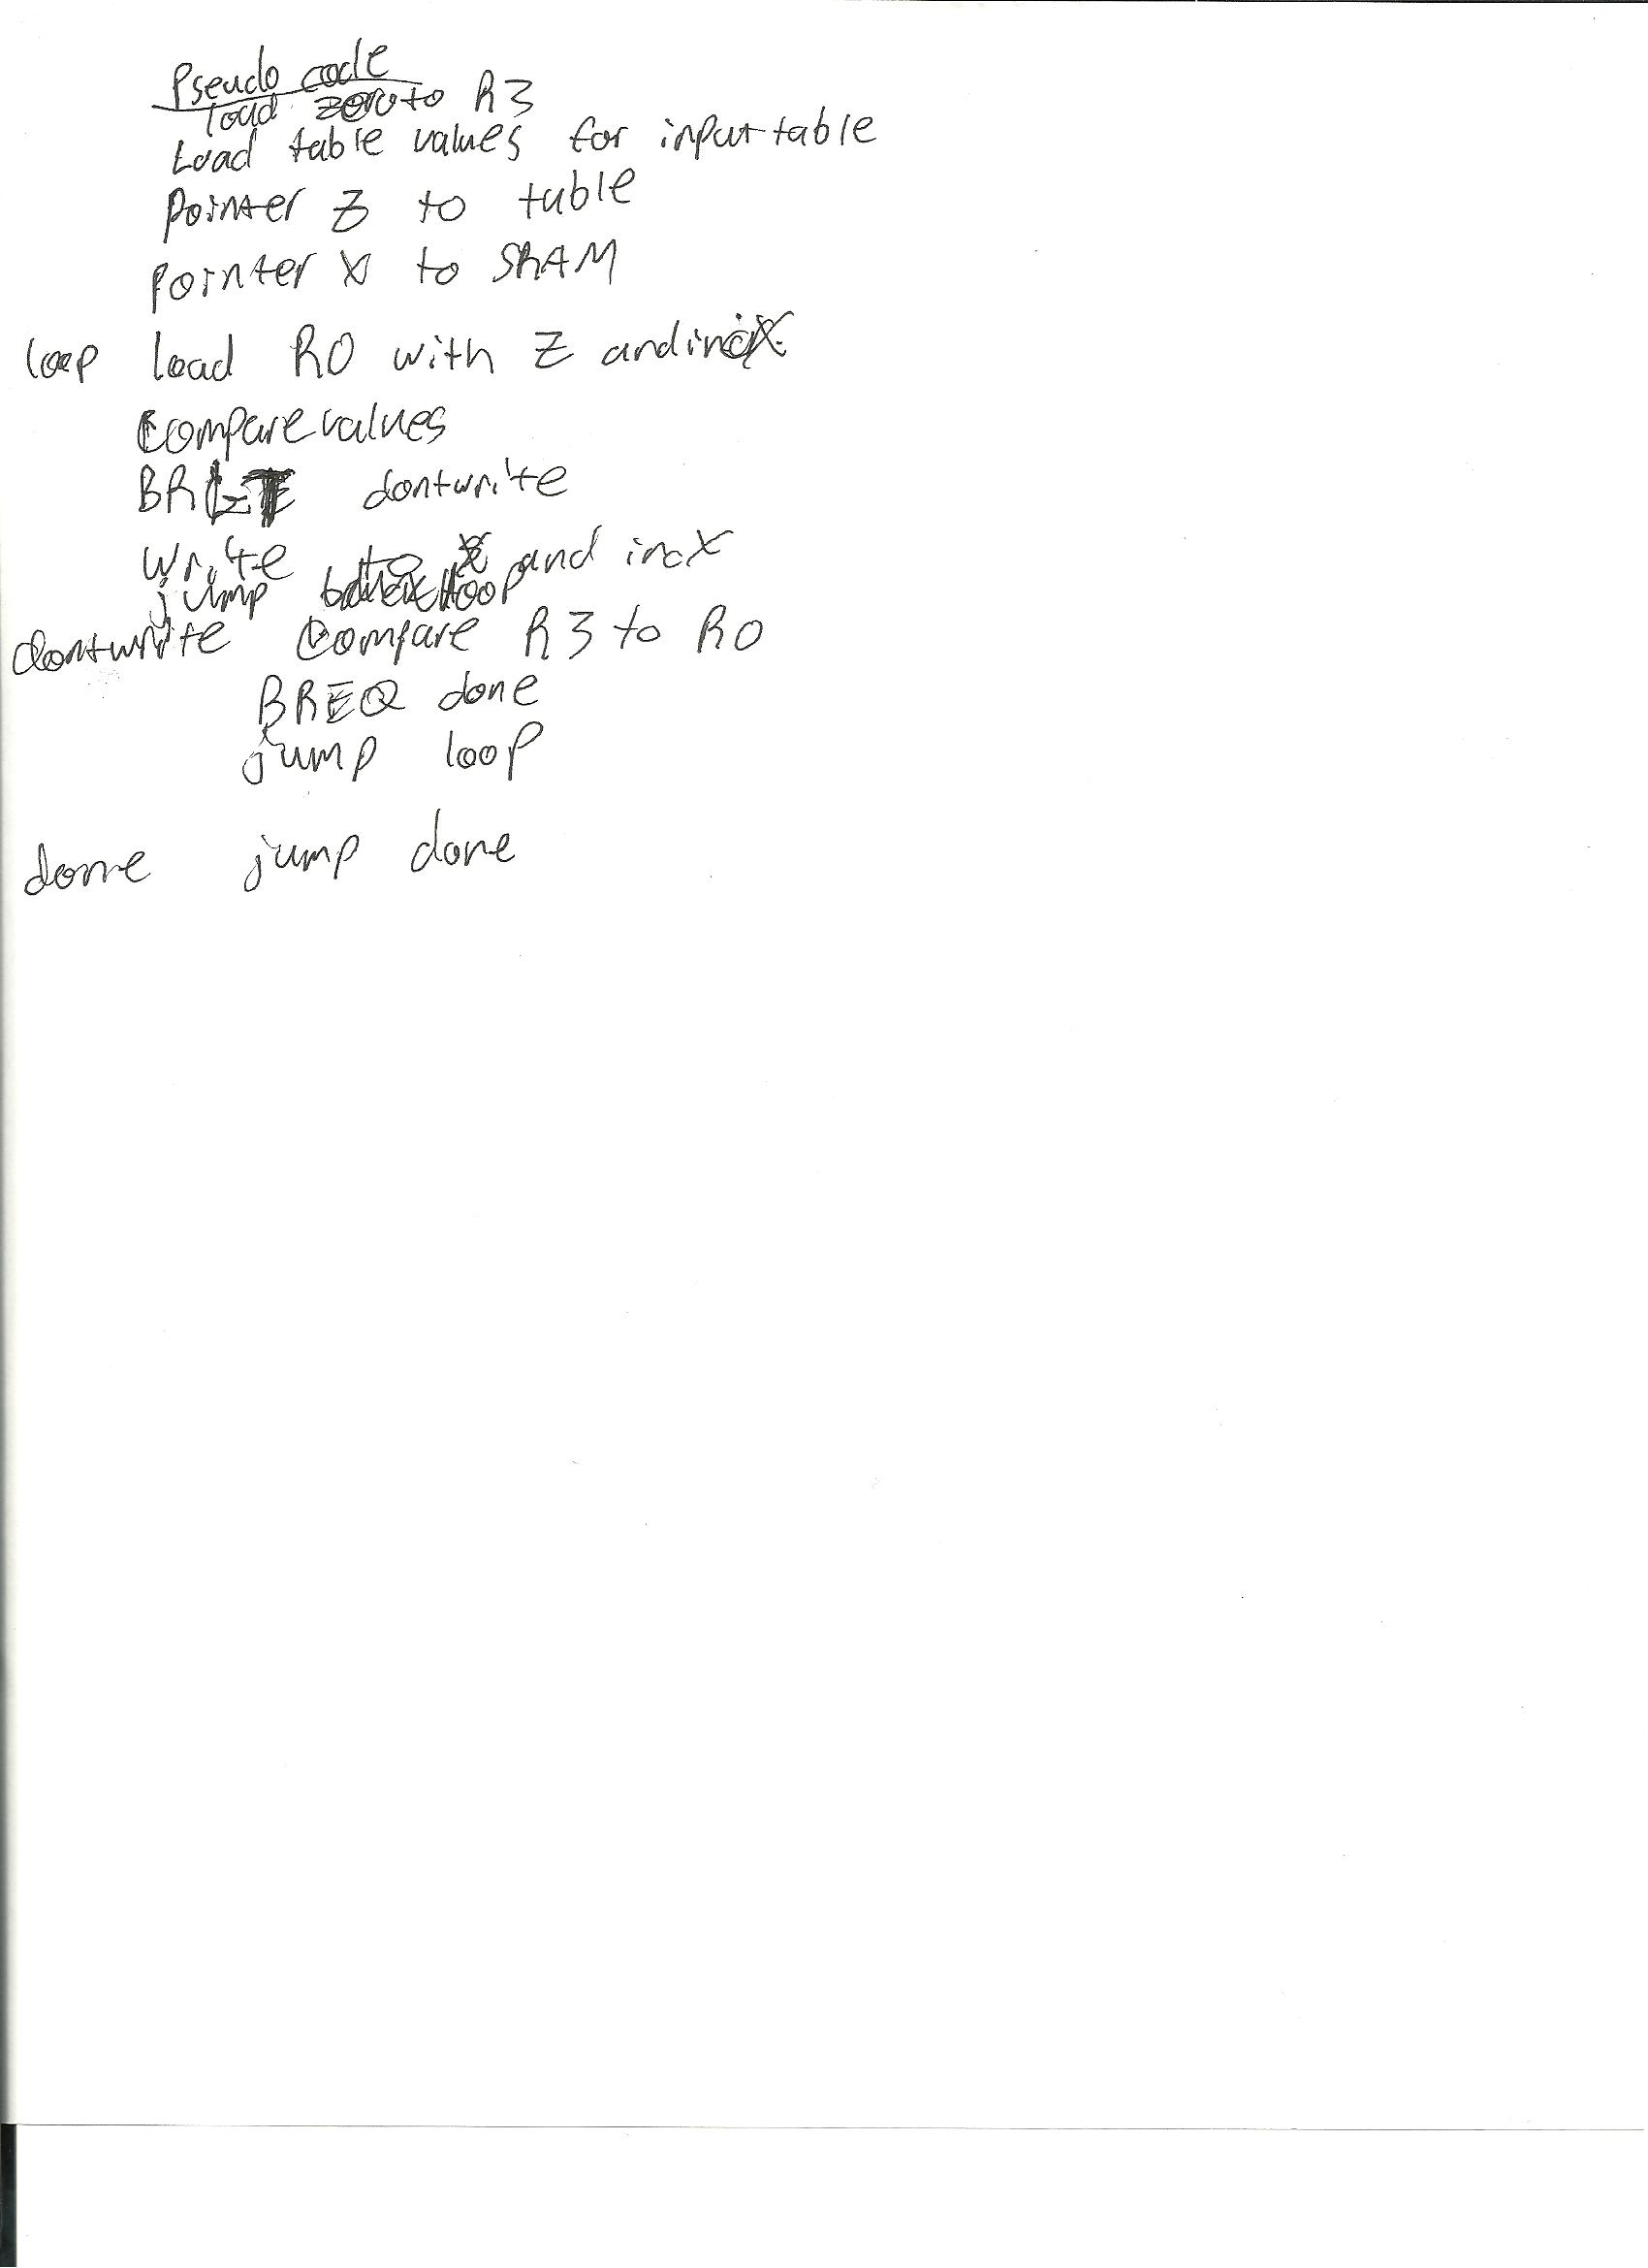 Pseudo code
load zero to R3
Load table values for input table
Pointer Z to table
Pointer X to SRAM
loop load R0 with Z and inc
Compare values
dontwrite
write to and inc X
jump back loop
dontwrite Compare R3 to R0
BREQ done
jump loop
done jump done